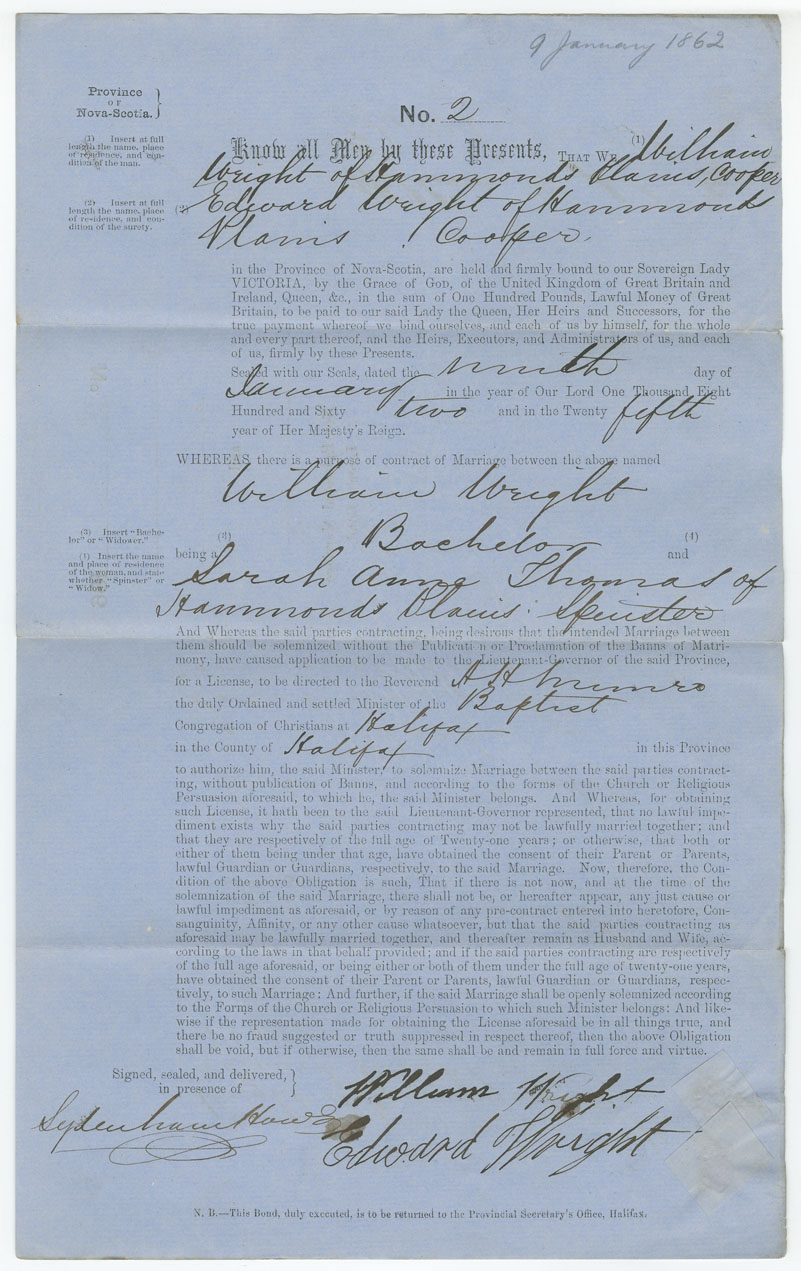 9 January 1862
Province
OF
Nova-Scotia.
No. 2
(1) Insert at full
length the name, place
of residence, and con-
dition of the man.
Know all Men by these Presents, THAT WE (1) William
Wright of Hammonds Plains, Cooper
(2) Insert at full
length the name, place
of residence, and con-
dition of the surety.
(2) Edward Wright of Hammonds
Plains , Cooper.
in the Province of Nova-Scotia, are held and firmly bound to our Sovereign Lady
VICTORIA, by the Grace of GOD, of the United Kingdom of Great Britain and
Ireland, Queen, &c., in the sum of One Hundred Pounds, Lawful Money of Great
Britain, to be paid to our said Lady the Queen, Her Heirs and Successors, for the
true payment whereof we bind ourselves, and each of us by himself, for the whole
and every part thereof, and the Heirs, Executors, and Administrators of us, and each
of us, firmly by these Presents.
Sealed with our Seals, dated the ninth day of
January in the year of Our Lord One Thousand Eight
Hundred and Sixty two and in the Twenty fifth
year of Her Majesty's Reign.
WHEREAS there is a purpose of contract of Marriage between the above named
William Wright
(3) Insert "Bache-
lor" or "Widower."
being a (3) Bachelor and (4)
(4) Insert the name
and place of residence
of the woman, and state
whether "Spinster" or
"Widow."
Sarah Anne Thomas of
Hammonds Plains. Spinster
And Whereas the said parties contracting, being desirous that the intended Marriage between
them should be solemnized without the Publication or Proclamation of the Banns of Matri-
mony, have caused application to be made to the Lieutenant-Governor of the said Province,
for a License, to be directed to the Reverend A H Munro
the duly Ordained and settled Minister of the Baptist
Congregation of Christians at Halifax
in the County of Halifax in this Province
to authorize him, the said Minister, to solemnize Marriage between the said parties contract-
ing, without publication of Banns, and according to the forms of the Church or Religious
Persuasion aforesaid, to which he, the said Minister belongs. And Whereas, for obtaining
such License, it hath been to the said Lieutenant-Governor represented, that no lawful impe-
diment exists why the said parties contracting may not be lawfully married together; and
that they are respectively of the full age of Twenty-one years; or otherwise, that both or
either of them being under that age, have obtained the consent of their Parent or Parents,
lawful Guardian or Guardians, respectively, to the said Marriage. Now, therefore, the Con-
dition of the above Obligation is such, That if there is not now, and at the time of the
solemnization of the said Marriage, there shall not be, or hereafter appear, any just cause or
lawful impediment as aforesaid, or by reason of any pre-contract entered into heretofore, Con-
sanguinity, Affinity, or any other cause whatsoever, but that the said parties contracting as
aforesaid may be lawfully married together, and thereafter remain as Husband and Wife, ac-
cording to the laws in that behalf provided; and if the said parties contracting are respectively
of the full age aforesaid, or being either or both of them under the full age of twenty-one years,
have obtained the consent of their Parent or Parents, lawful Guardian or Guardians, respec-
tively, to such Marriage: And further, if the said Marriage shall be openly solemnized according
to the Forms of the Church or Religious Persuasion to which such Minister belongs: And like-
wise if the representation made for obtaining the License aforesaid be in all things true, and
there be no fraud suggested or truth suppressed in respect thereof, then the above Obligation
shall be void, but if otherwise, then the same shall be and remain in full force and virtue.
Signed, sealed, and delivered,
in presence of
William Wright
Sydenham Howe
Edward Wright
N. B.—This Bond, duly executed, is to be returned to the Provincial Secretary's Office, Halifax.